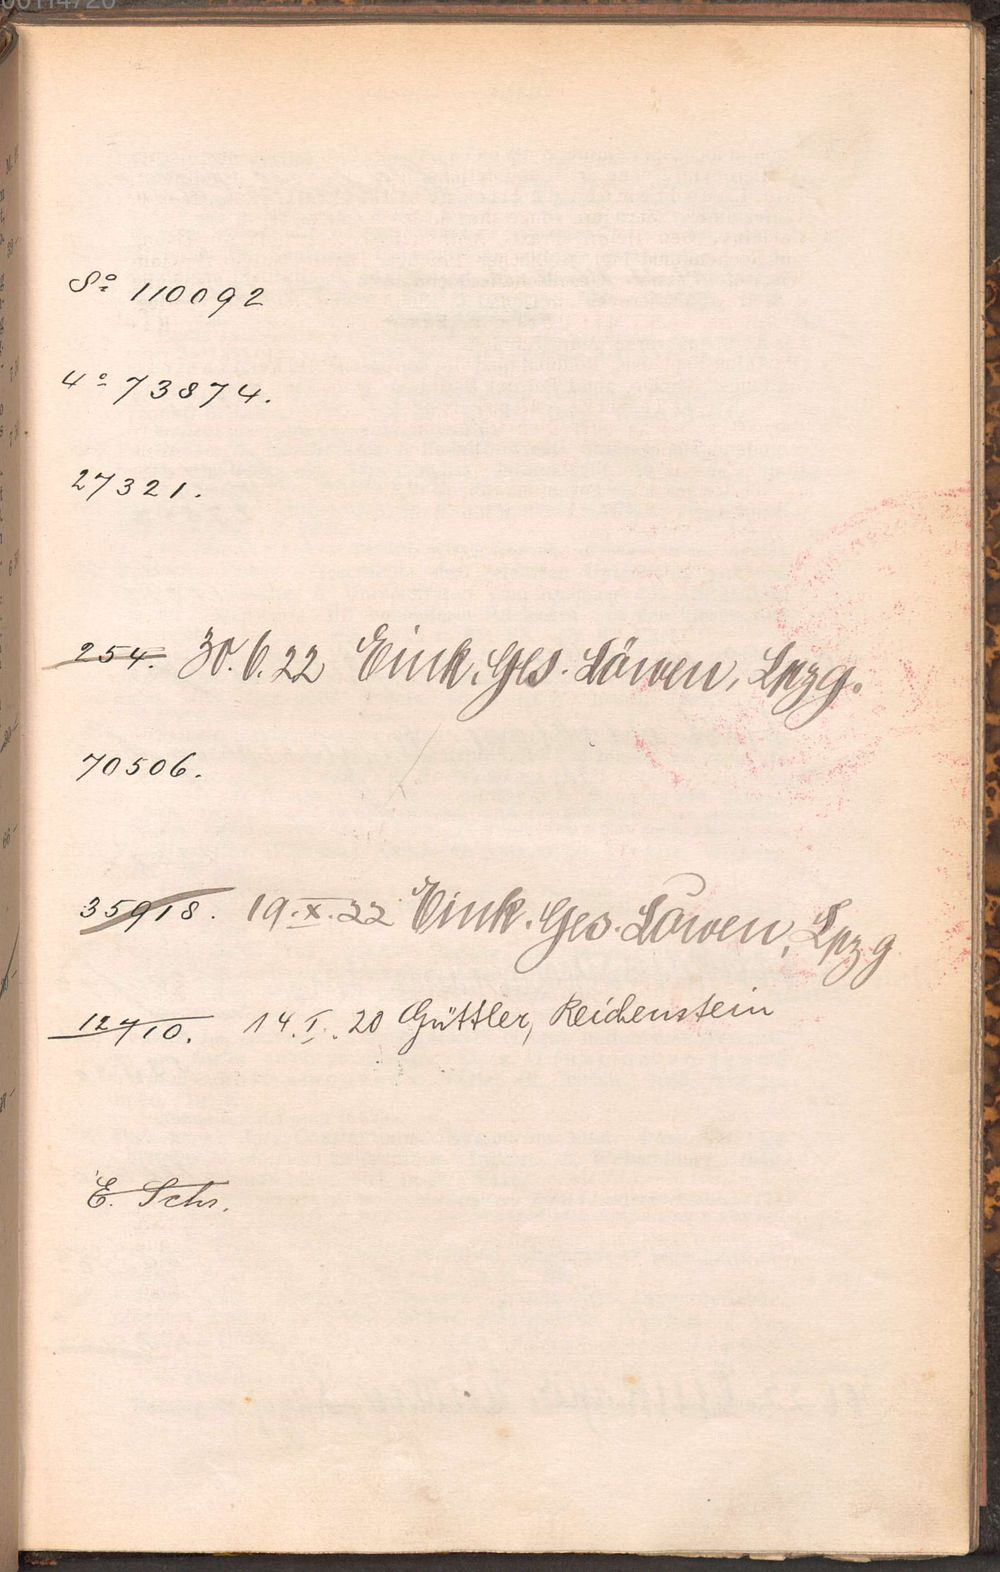 8º 110092
4º 73874.
27321.
254. 30.6.22 Eink. Ges. Löwen, Lpzg.
70506.
35918. 19.X.22 Eink. Ges. Löwen, Lpzg
12710. 14.I.20 Güttler, Reichenstein
E. Schr.